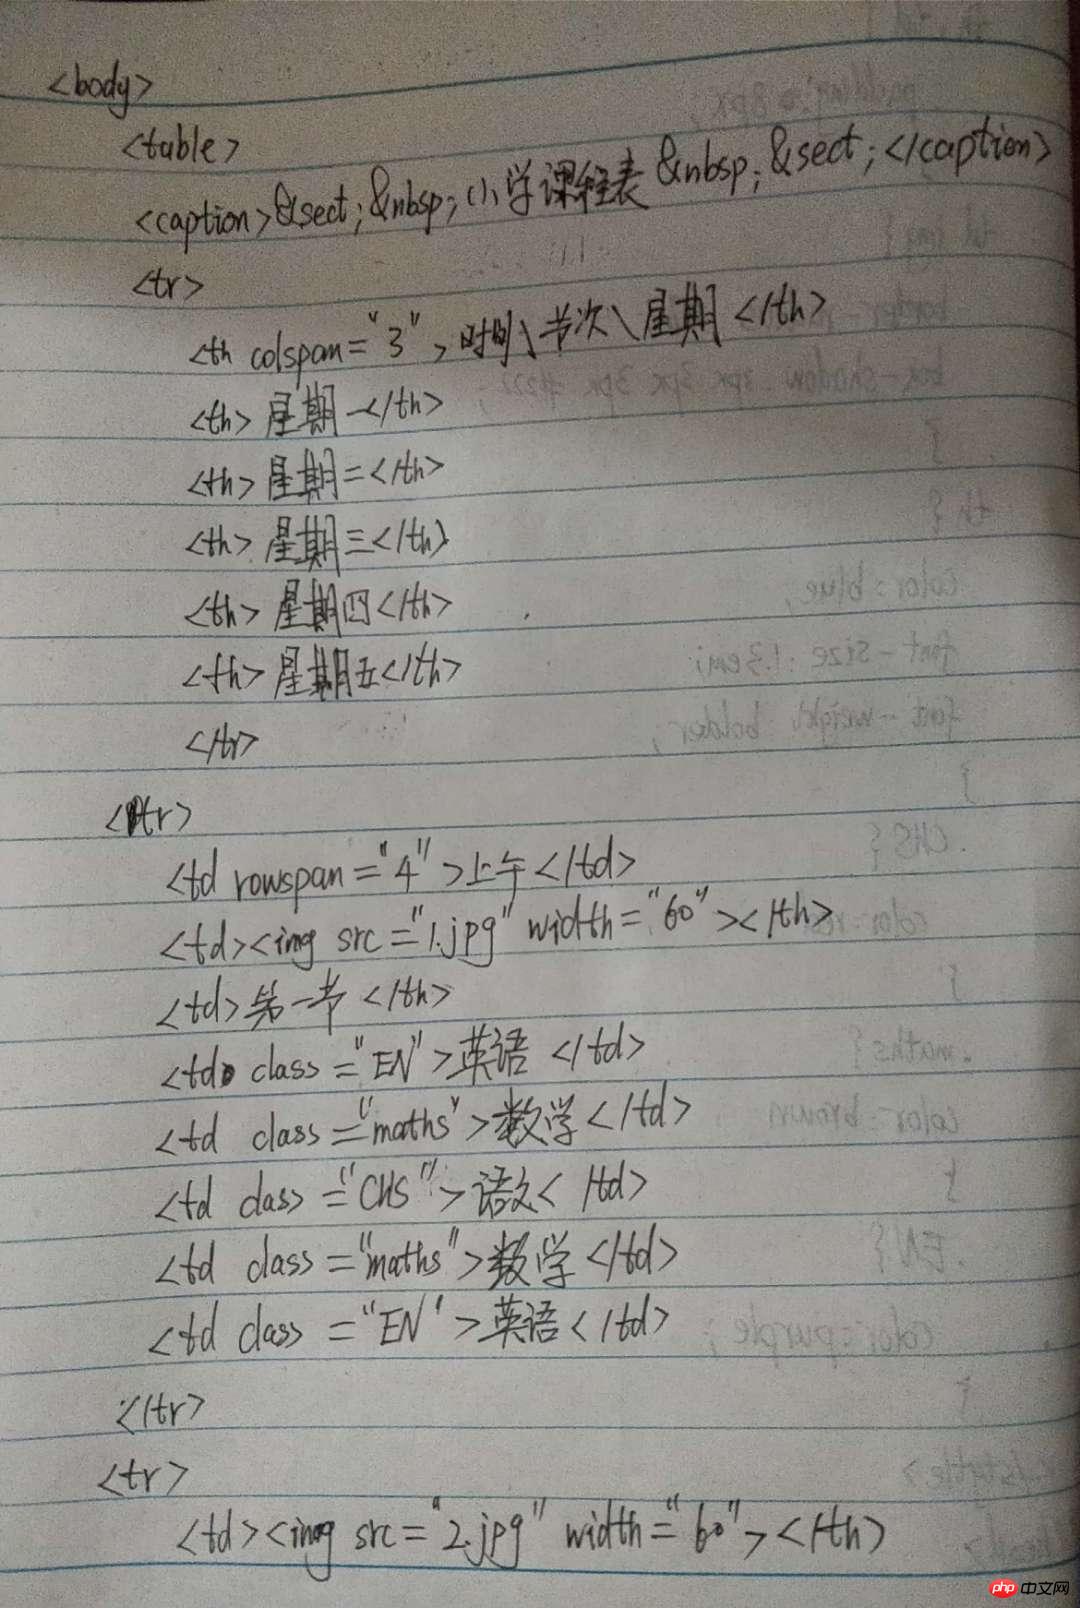 <body>
<table>
<caption>&sect;&nbsp;小学课程表&nbsp;&sect;</caption>
<tr>
<th colspan="3">时间\节次\星期</th>
<th>星期一</th>
<th>星期二</th>
<th>星期三</th>
<th>星期四</th>
<th>星期五</th>
</tr>
<tr>
<td rowspan="4">上午</td>
<td><img src="1.jpg" width="60"></th>
<td>第一节</th>
<td class="EN">英语</td>
<td class="maths">数学</td>
<td class="CHS">语文</td>
<td class="maths">数学</td>
<td class="EN">英语</td>
</tr>
<tr>
<td><img src="2.jpg" width="60"></th>
php 中文网